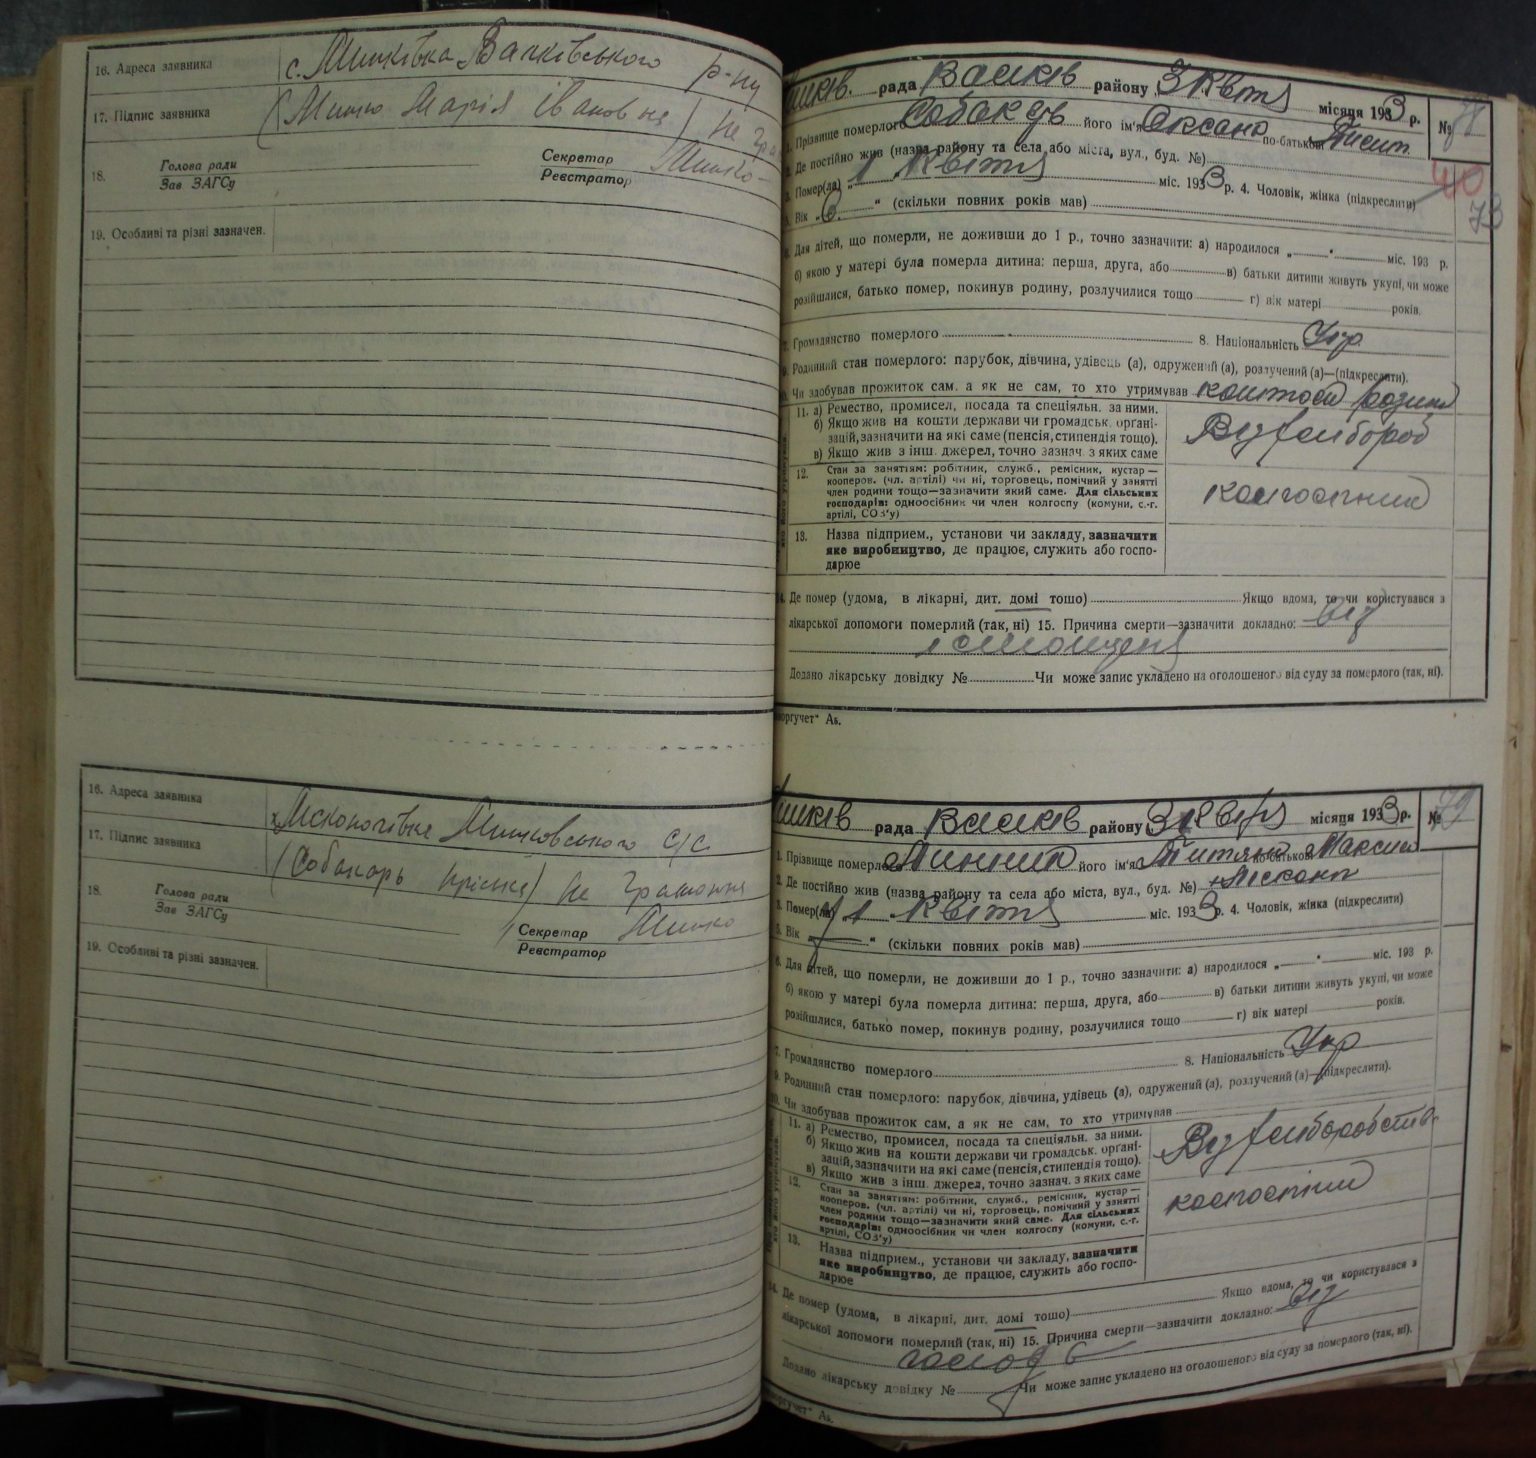 16. Адреса заявника с. Мишківка Валківського р-ну
17. Підпис заявника (Мишко Марія Івановна) не
18. Голова ради
Зав ЗАГСу
Секретар
Реєстратор Мишко
19. Особливі та різні зазначен.
16. Адреса заявника
17. Підпис заявника (Собакарь) не грамотна
18. Голова ради
Зав ЗАГСу
Секретар
Реєстратор Мишко
19. Особливі та різні зазначен.
рада Валків району 3 Квітня місяця 1933 р. № 78
1. Прізвище померлого його ім'я Оксана по-батькові
2. Де постійно жив (назва району та села або міста, вул., буд. №)
3. Помер(ла) „1 Квітня міс. 1933 р. 4. Чоловік, жінка (підкреслити)
40
73
5. Вік „6" (скільки повних років мав)
6. Для дітей, що померли, не доживши до 1 р., точно зазначити: а) народилося „ " міс. 193 р.
б) якою у матері була померла дитина: перша, друга, або в) батьки дитини живуть укупі, чи може
розійшлися, батько помер, покинув родину, розлучилися тощо г) вік матері років.
7. Громадянство померлого 8. Національність Укр
9. Родинний стан померлого: парубок, дівчина, удівець (а), одружений (а), розлучений (а)—(підкреслити).
10. Чи здобував прожиток сам, а як не сам, то хто утримував
11. а) Ремество, промисел, посада та спеціяльн. за ними.
б) Якщо жив на кошти держави чи громадськ. органі-
зацій, зазначити на які саме (пенсія, стипендія тощо).
в) Якщо жив з інш. джерел, точно зазнач. з яких саме
12. Стан за занятіям: робітник, служб., ремісник, кустар—
кооперов. (чл. артілі) чи ні, торговець, помічний у занятті
член родини тощо—зазначити який саме. Для сільських
господарів: одноосібник чи член колгоспу (комуни, с.-г.
артілі, СОЗ'у)
13. Назва підприєм., установи чи закладу, зазначити
яке виробництво, де працює, служить або госпо-
дарює
14. Де помер (удома, в лікарні, дит. домі тошо) Якщо вдома, то чи користувався з
лікарської допомоги померлий (так, ні) 15. Причина смерти—зазначити докладно: від
Додано лікарську довідку № Чи може запис укладено на оголошеного від суду за померлого (так, ні).
рада Валків району місяця 1933 р. № 79
1. Прізвище померлого його ім'я по-батькові Максим
2. Де постійно жив (назва району та села або міста, вул., буд. №)
3. Помер(ла) 1 Квітня міс. 1933 р. 4. Чоловік, жінка (підкреслити)
5. Вік „ " (скільки повних років мав)
6. Для дітей, що померли, не доживши до 1 р., точно зазначити: а) народилося „ " міс. 193 р.
б) якою у матері була померла дитина: перша, друга, або в) батьки дитини живуть укупі, чи може
розійшлися, батько помер, покинув родину, розлучилися тощо г) вік матері років.
7. Громадянство померлого 8. Національність Укр
9. Родинний стан померлого: парубок, дівчина, удівець (а), одружений (а), розлучений (а)—(підкреслити).
10. Чи здобував прожиток сам, а як не сам, то хто утримував
11. а) Ремество, промисел, посада та спеціяльн. за ними.
б) Якщо жив на кошти держави чи громадськ. органі-
зацій, зазначити на які саме (пенсія, стипендія тощо).
в) Якщо жив з інш. джерел, точно зазнач. з яких саме
12. Стан за занятіям: робітник, служб., ремісник, кустар—
кооперов. (чл. артілі) чи ні, торговець, помічний у занятті
член родини тощо—зазначити який саме. Для сільських
господарів: одноосібник чи член колгоспу (комуни, с.-г.
артілі, СОЗ'у)
13. Назва підприєм., установи чи закладу, зазначити
яке виробництво, де працює, служить або госпо-
дарює
14. Де помер (удома, в лікарні, дит. домі тошо) Якщо вдома, то чи користувався з
лікарської допомоги померлий (так, ні) 15. Причина смерти—зазначити докладно: від
голоду
Додано лікарську довідку № Чи може запис укладено на оголошеного від суду за померлого (так, ні).